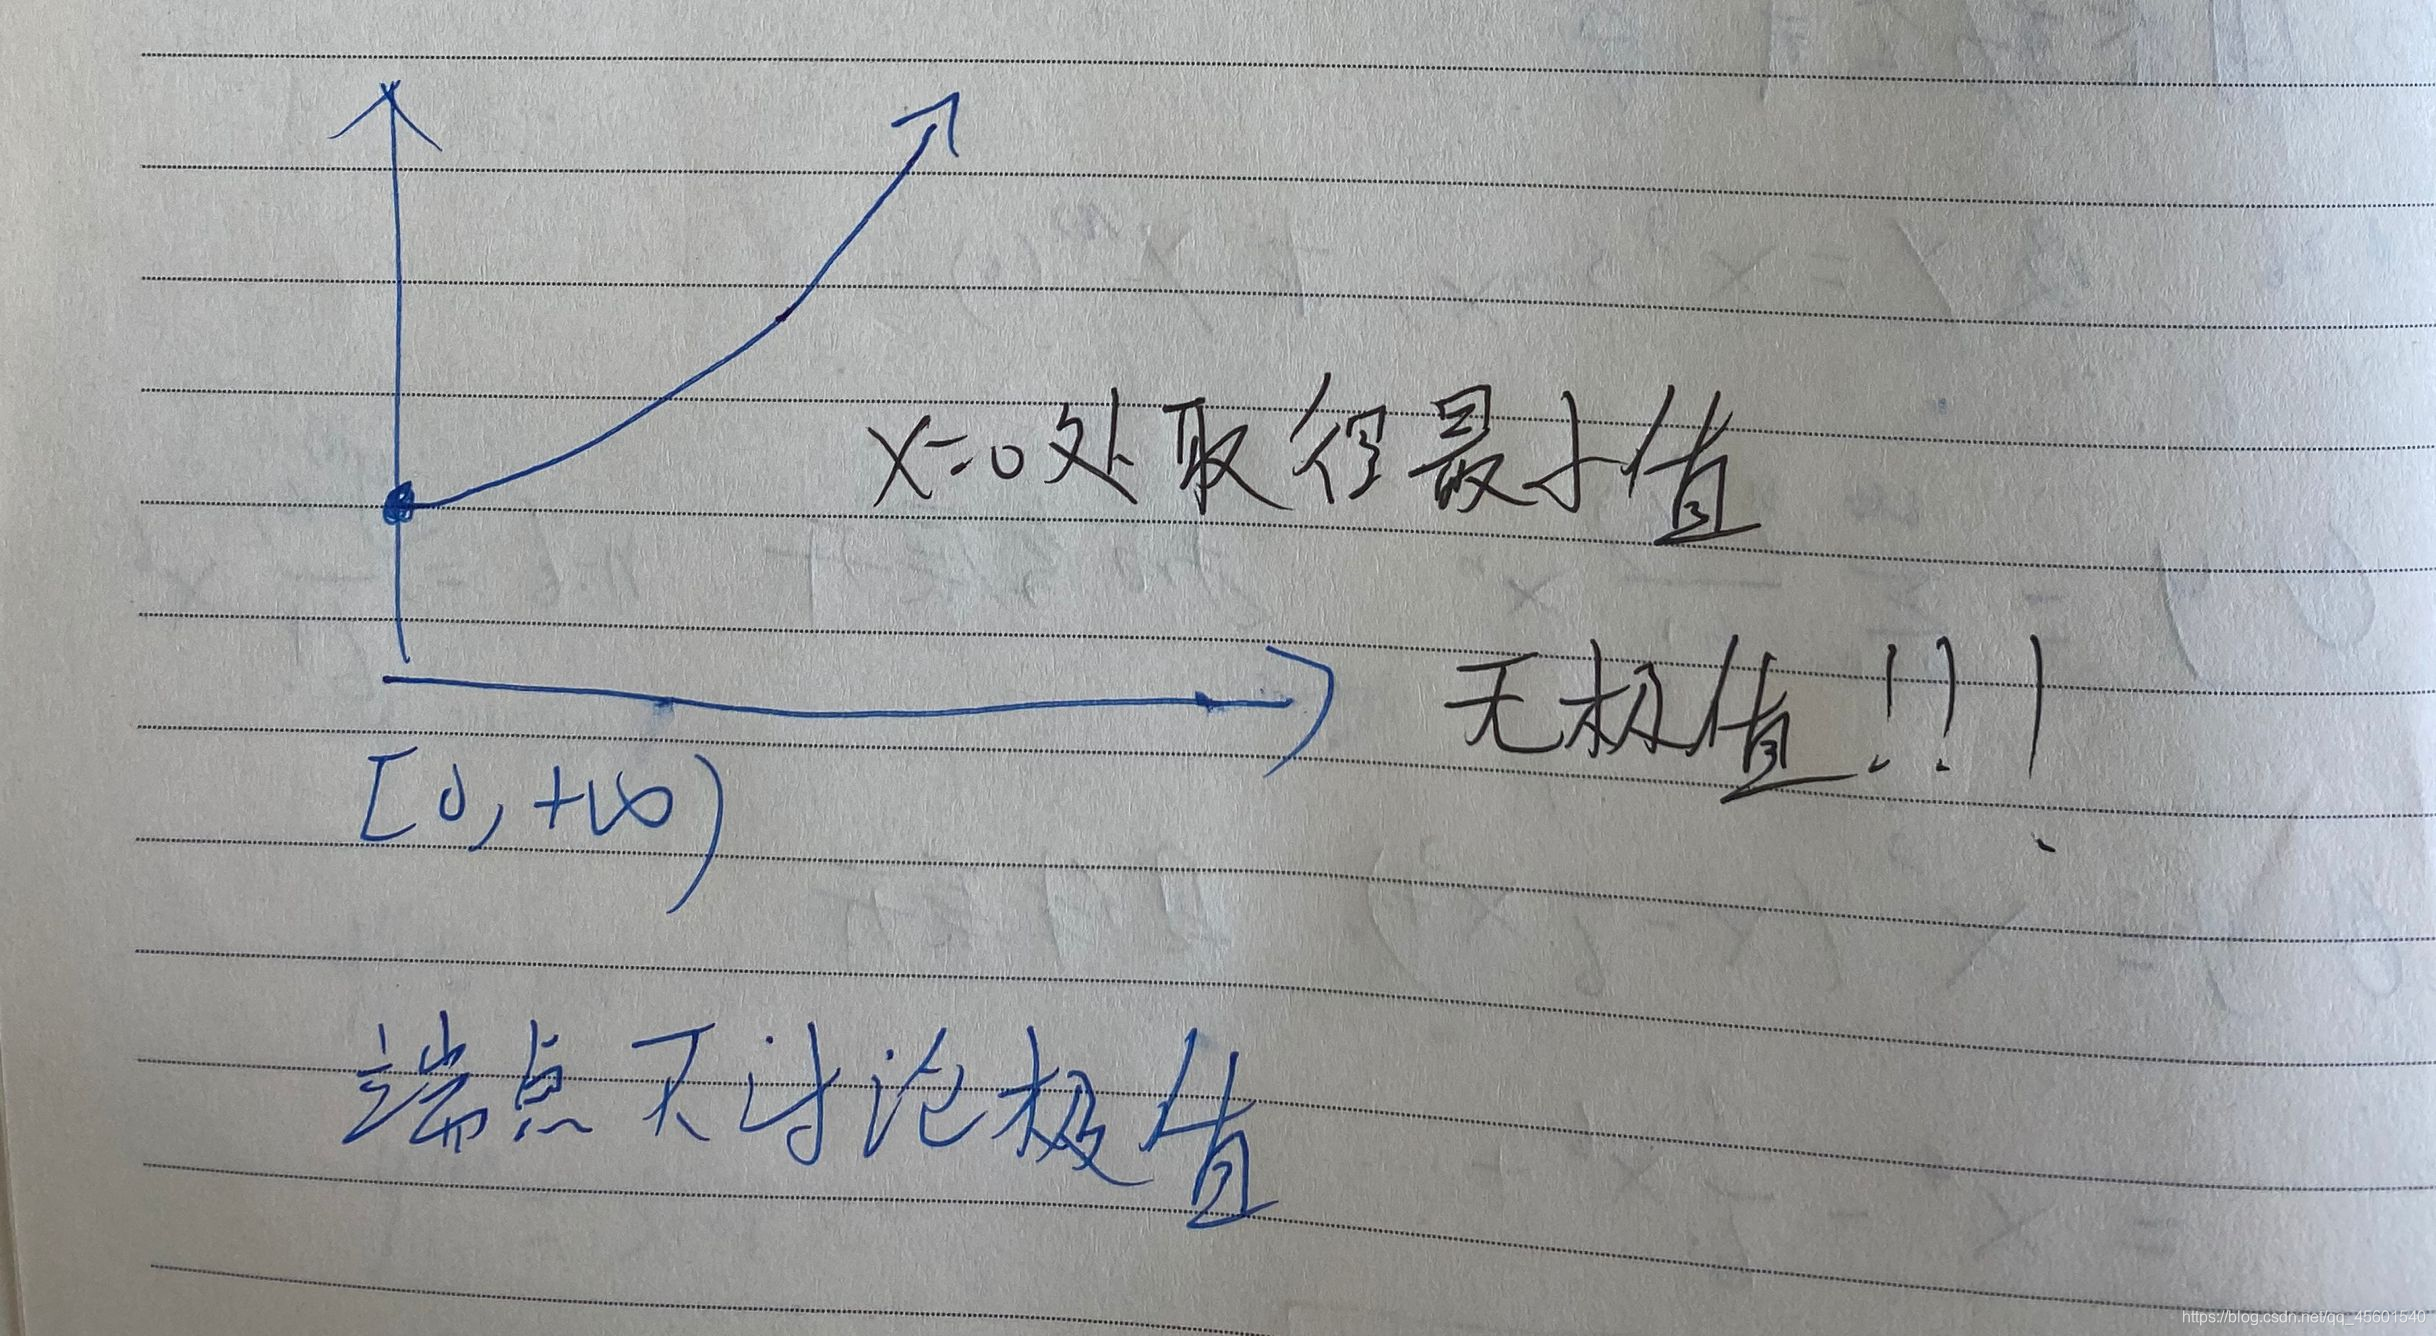 x=0处取得最小值
无极值!!!
[0,+∞)
端点不讨论极值
https://blog.csdn.net/qq_45601540